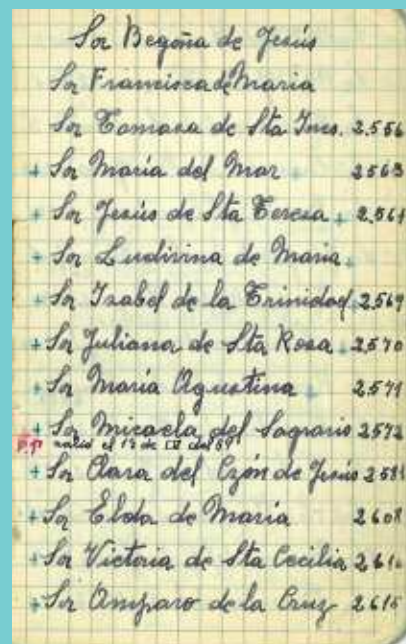 Sor Begoña de Jesús
Sor Francisca de Maria
Sor Tomasa de Sta Ines. 2.556
+ Sor María del Mar 2563
+ Sor Jesús de Sta Teresa + 2.561
+ Sor Ludivina de Maria +
+ Sor Isabel de la Trinidad 2.569
+ Sor Juliana de Sta Rosa + 2570
+ Sor María Agustina + 2571
+ Sor Micaela del Sagrario 2572
P.P. salió el 12 de IX del 69
+ Sor Clara del Czón de Jesús
+ Sor Elda de María 2608
+ Sor Victoria de Sta Cecilia
+ Sor Amparo de la Cruz 2615